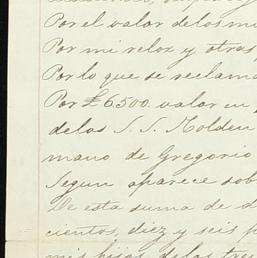 Por el valor de los mi
Por mi relox y otras
Por lo que se reclama
Por £6500. valor en
de los S. S. Holden
mano de Gregorio
Segun aparece sob
De esta suma de d
cientos, diez y seis p
mis hijos, de las tres